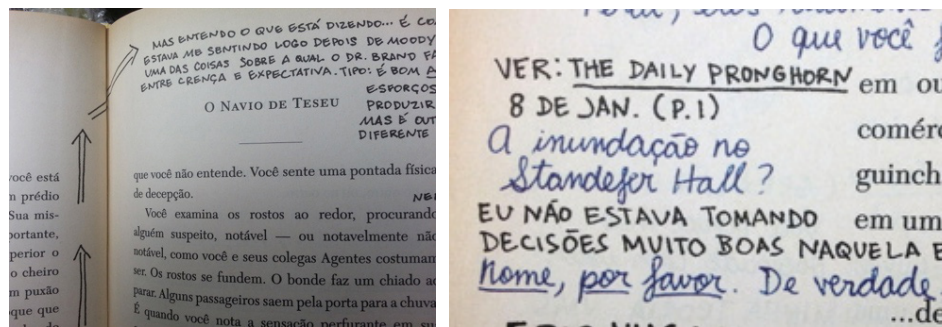 MAS ENTENDO O QUE ESTÁ DIZENDO... É
ESTAVA ME SENTINDO LOGO DEPOIS DE MOODY
UMA DAS COISAS SOBRE A QUAL O DR. BRAND
ENTRE CRENÇA E EXPECTATIVA. TIPO: É BOM A
ESFORÇOS
PRODUZIR
MAS É OUT
DIFERENTE
O NAVIO DE TESEU
que você não entende. Você sente uma pontada física
de decepção.
Você examina os rostos ao redor, procurando
alguém suspeito, notável — ou notavelmente não
notável, como você e seus colegas Agentes costumam
ser. Os rostos se fundem. O bonde faz um chiado ao
parar. Alguns passageiros saem pela porta para a chuva
É quando você nota a sensação perfurante em su
você está
prédio
Sua mis-
portante,
perior o
o cheiro
m puxão
que que
O que você
VER: THE DAILY PRONGHORN
8 DE JAN. (P.1)
A inundação no
Standefer Hall?
EU NÃO ESTAVA TOMANDO
DECISÕES MUITO BOAS NAQUELA E
Nome, por favor. De verdade.
em ou
comérc
guinch
em um
...de